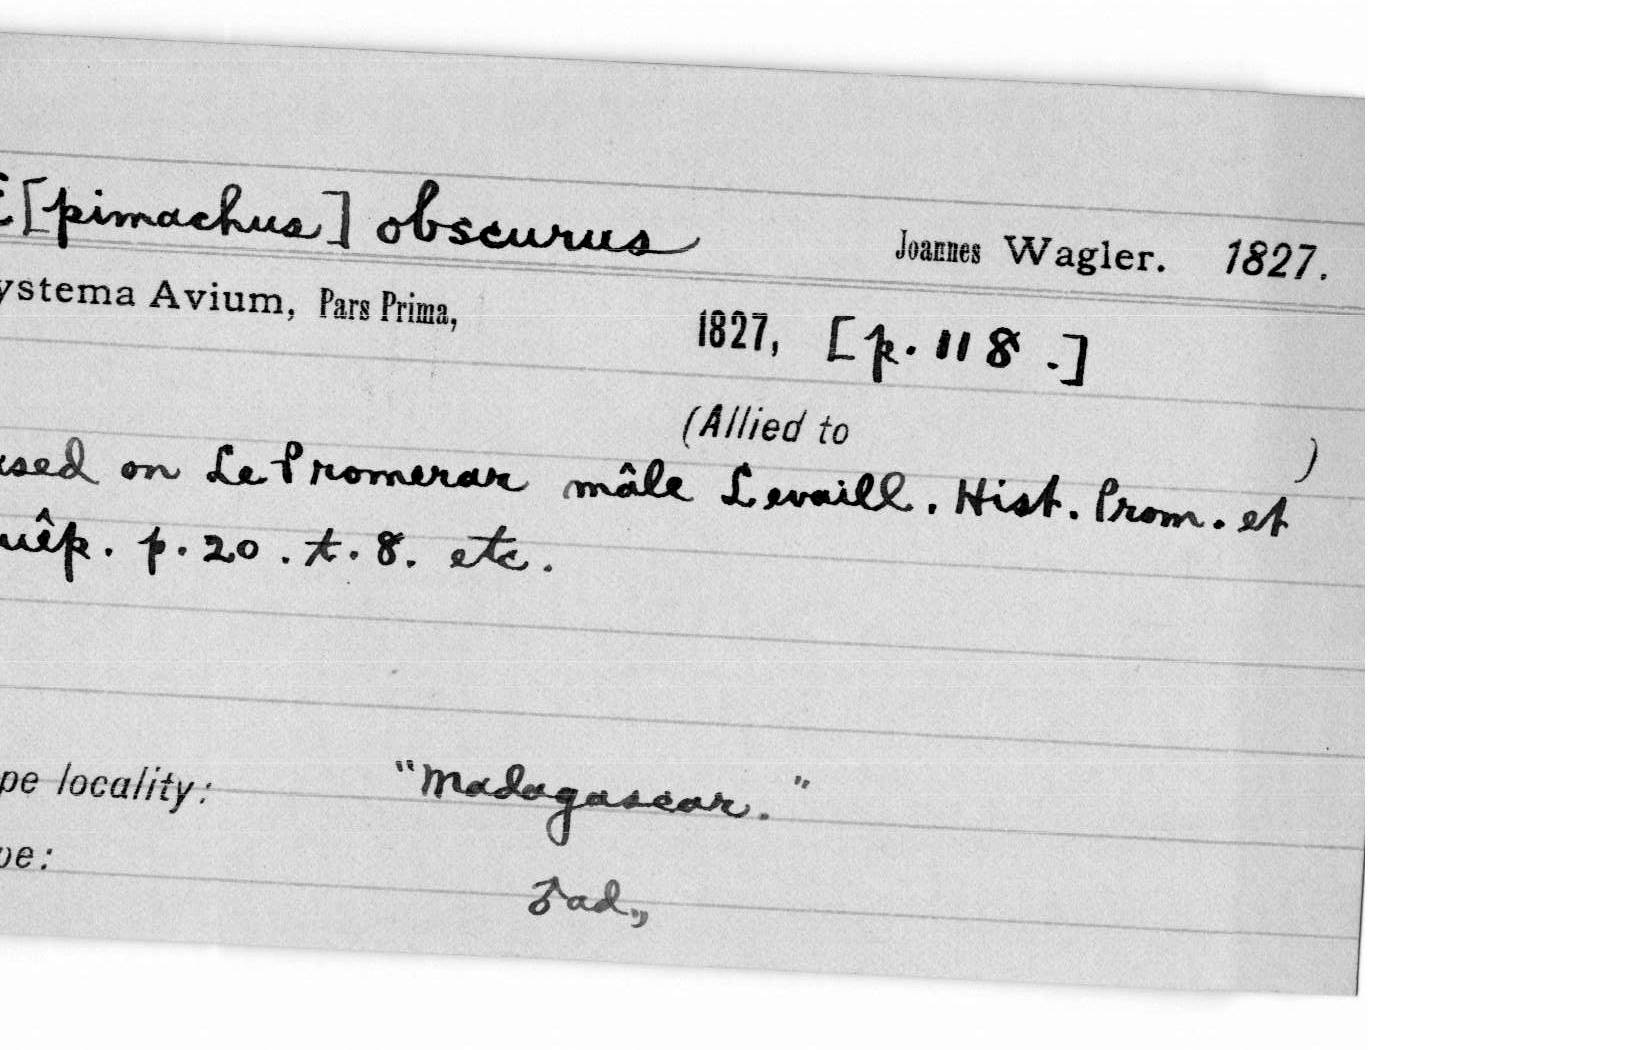 E[pimachus] obscurus Joannes Wagler. 1827.
ystema Avium, Pars Prima, 1827, [p. 118.]
(Allied to )
sed on Le Promerar mâle Levaill. Hist. Prom. et
uêp. p. 20. t. 8. etc.
pe locality: "Madagascar."
pe: ♂ ad.,,